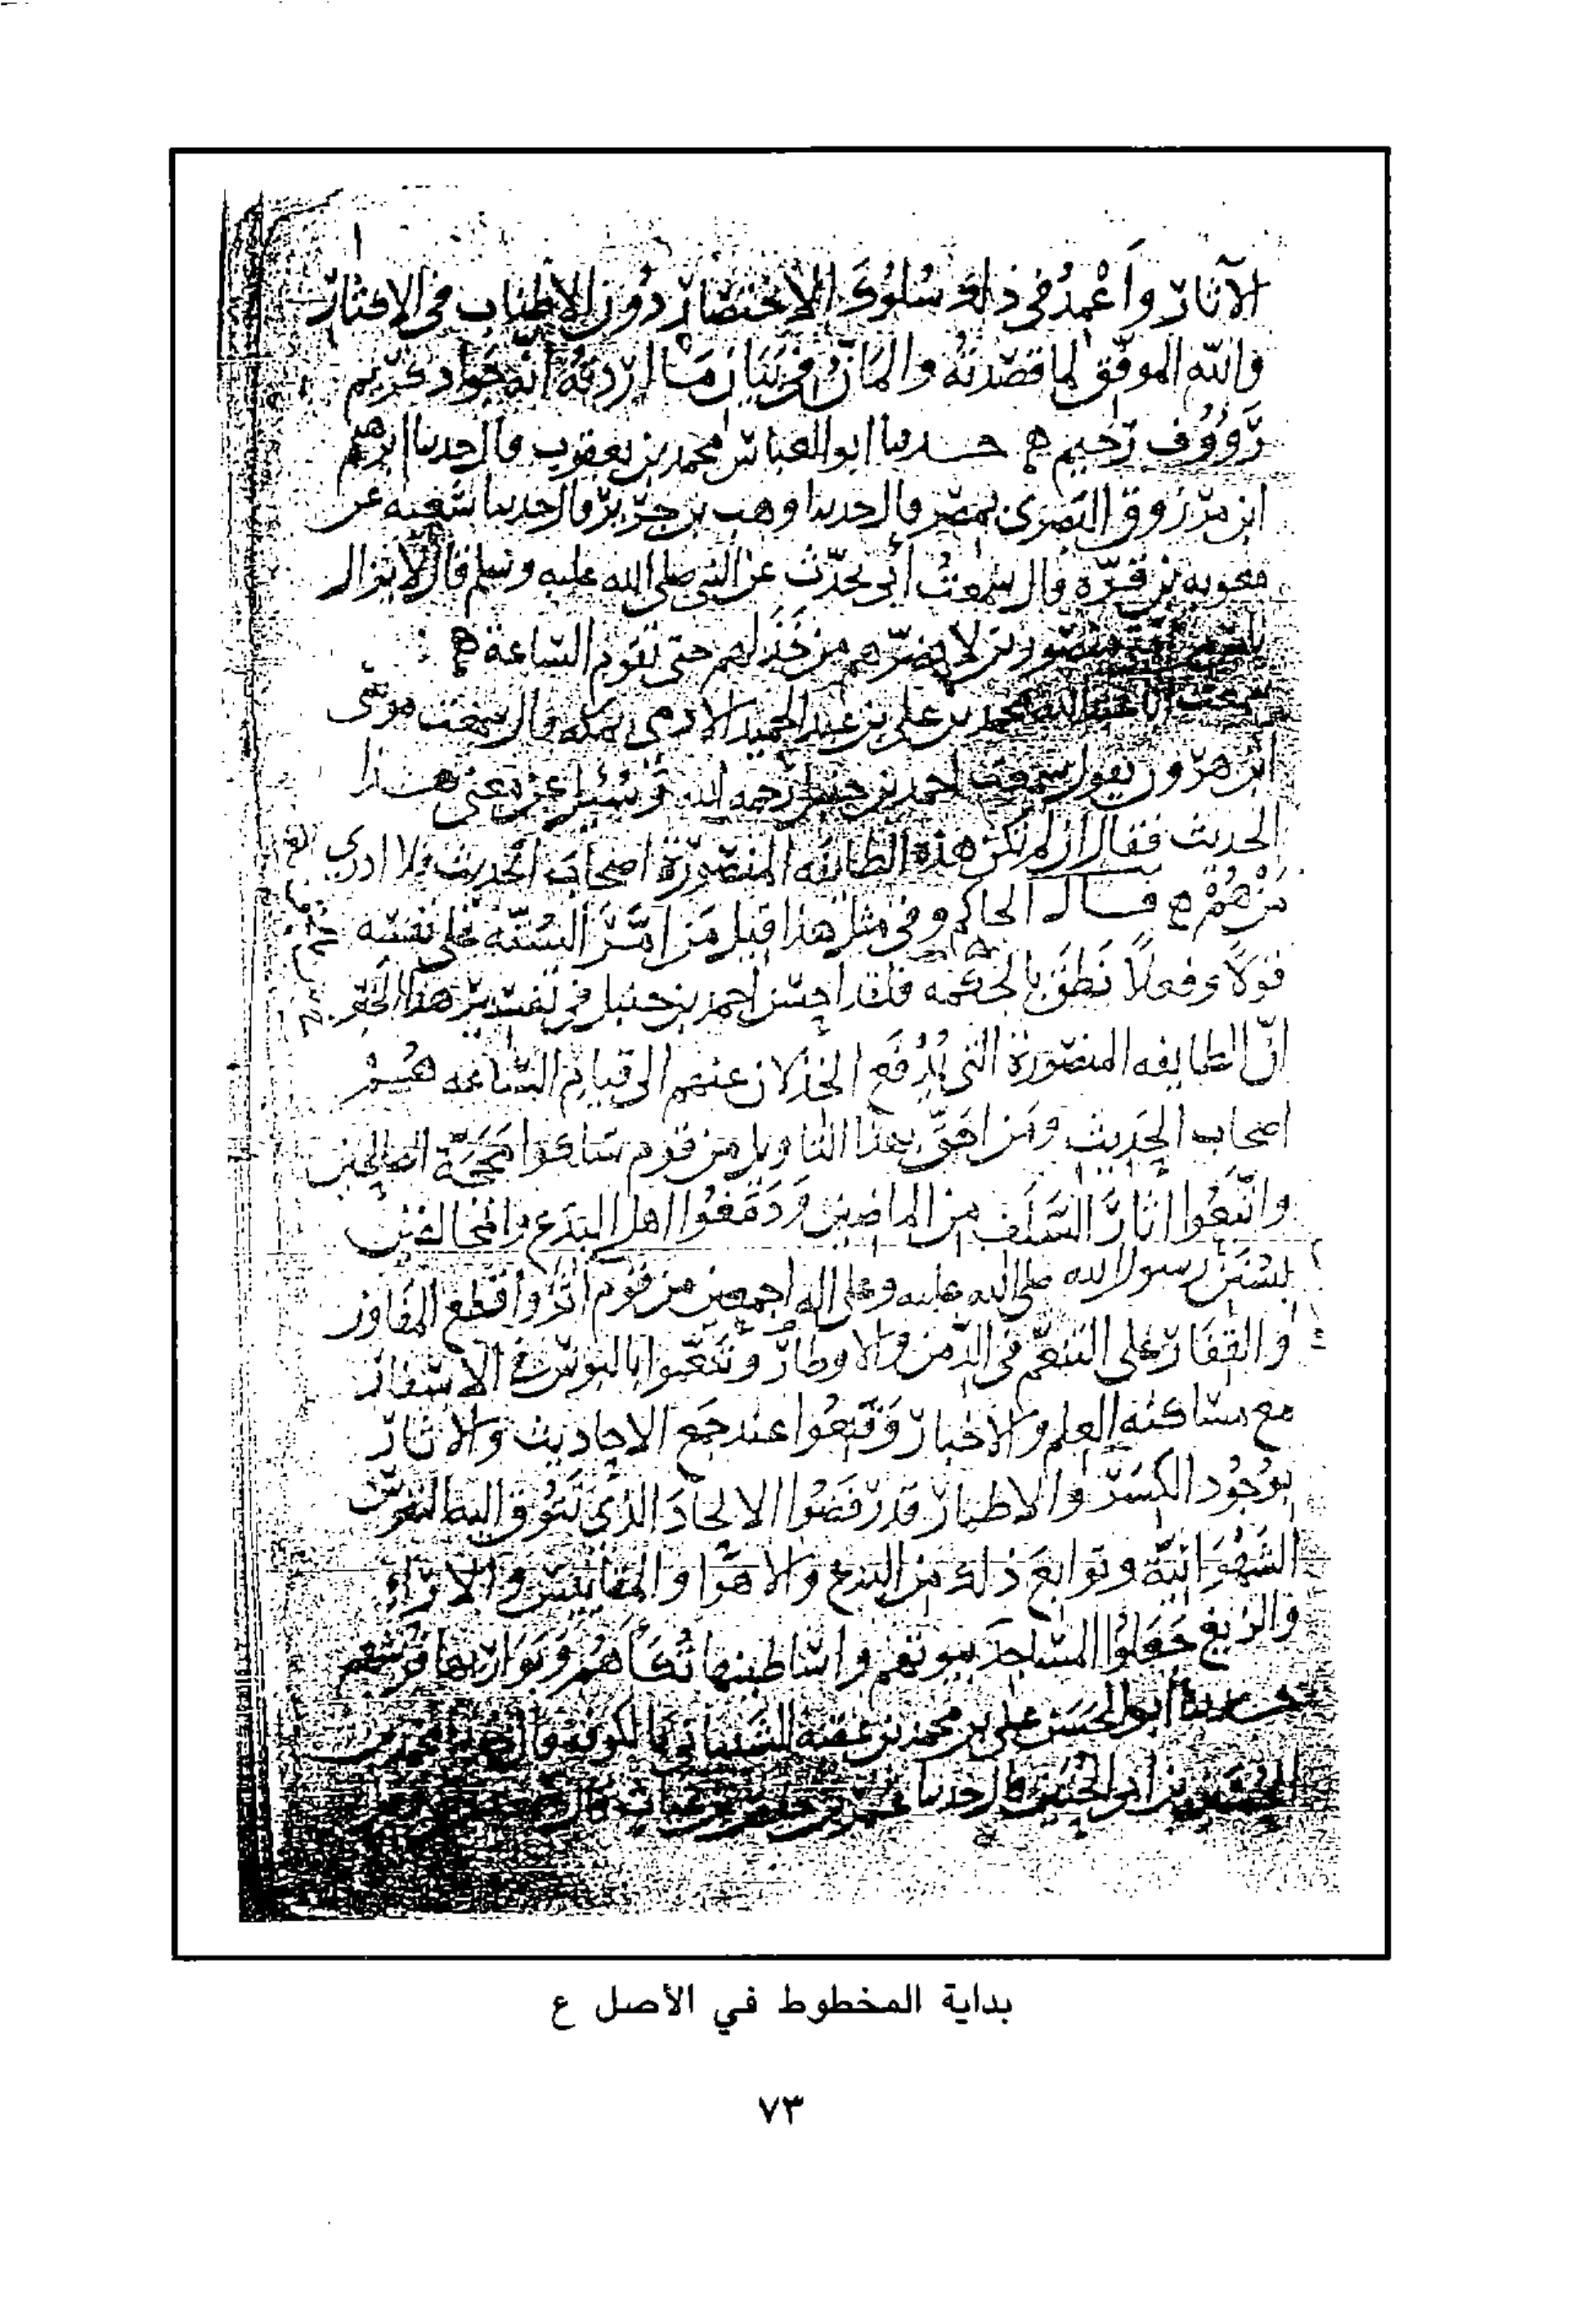 الآثار وأعمد في ذلك سلوك الاختصار دون الإطناب في الإكثار
والله الموفق لما قصدته والمان في بيان ما أردته انه جواد كريم
رؤوف رحيم ه حدثنا ابو العباس محمد بن يعقوب قال حدثنا ابرهيم
ابن مرزوق البصري بمصر قال حدثنا وهب بن جرير قال حدثنا شعبه عن
معويه بن قره قال سمعت أبي يحدث عن النبي صلى الله عليه وسلم قال لا يزال
ناس من امتي منصورين لا يضرهم من خذلهم حتى تقوم الساعة ه
سمعت أبا عبد الله محمد بن علي بن عبد الحميد الادمي بمكه قال سمعت موسى
ابن هرون يقول سمعت احمد بن حنبل رحمه الله وسئل عن معنى هذا
الحديث فقال ان لم تكن هذه الطائفه المنصورة اصحاب الحديث فلا ادري
من هم ه قال الحاكم وفي مثل هذا قيل من أمر السنة على نفسه
قولا وفعلا نطق بالحكمه فلقد احسن احمد بن حنبل في تفسير هذا الخبر
ان الطايفه المنصورة التي يدفع الخذلان عنهم الى قيام الساعه هم
اصحاب الحديث ومن احق بهذا التاويل من قوم سلكوا محجة الصالحين
واتبعوا اثار السلف من الماضين ودمغوا اهل البدع والمخالفين
بسنن رسول الله صلى الله عليه وعلى اله اجمعين من قوم آثروا قطع المفاوز
والقفار على التنعم في الدمن والاوطار وتنعموا بالبوس في الاسفار
مع مساكنة العلم والاخبار وقنعوا عند جمع الاحاديث والاثار
بوجود الكسر والاطمار قد رفضوا الالحاد الذي تتوق اليه النفوس
الشهوانية وتوابع ذلك من البدع والاهوا والمقاييس والآراء
والزيغ جعلوا المساجد بيوتهم واساطينها تكاهم وبواريها فرشهم
حدثنا أبو الحسن علي بن محمد بن عقبة الشيباني بالكوفه قال حدثنا محمد بن
الحسين بن ابي الحنين قال حدثنا عمر بن حفص بن غياث قال
بداية المخطوط في الأصل ع
٧٣